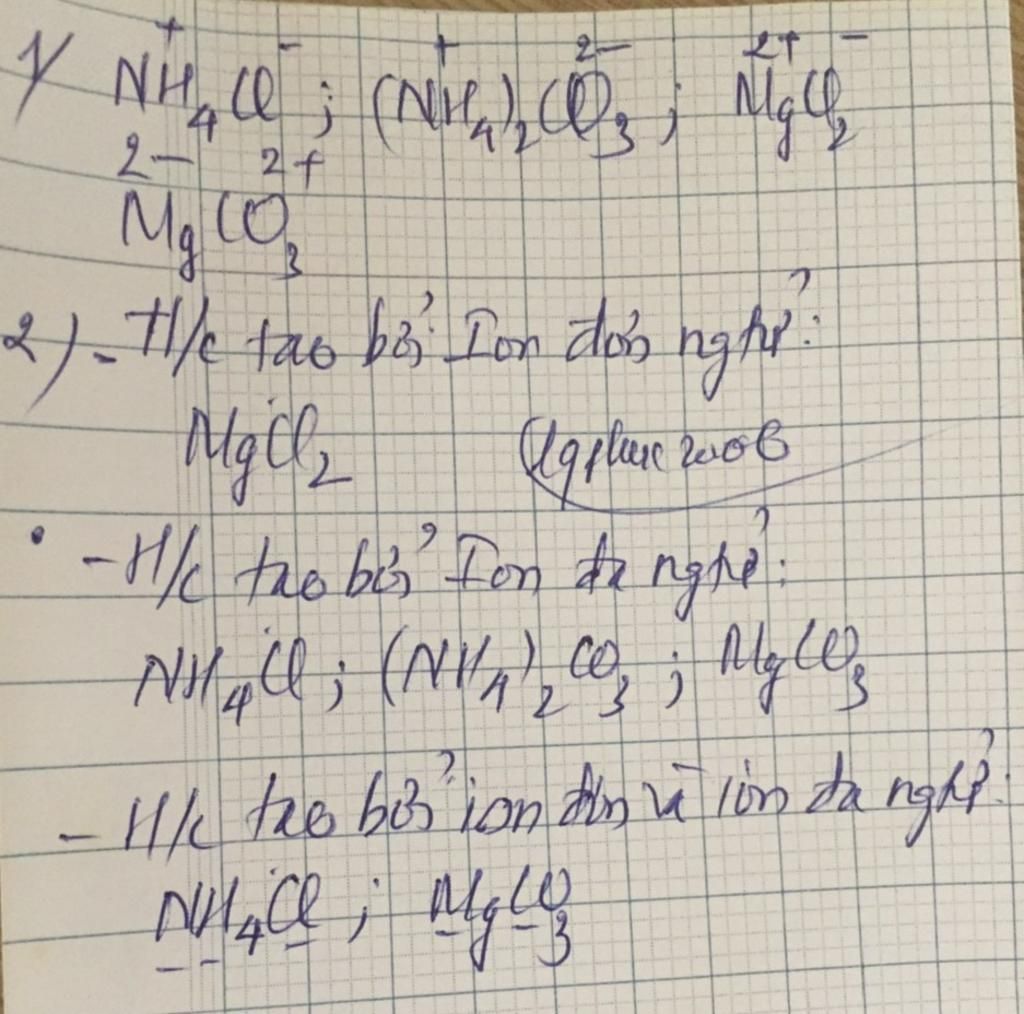 1/ NH₄⁺Cl⁻ ; (NH₄)₂⁺CO₃²⁻ ; Mg²⁺Cl₂⁻
2- 2+
MgCO₃
2) - H/c tạo bởi Ion đơn nghtử:
MgCl₂
- H/c tạo bởi Ion đa nghtử:
NH₄Cl ; (NH₄)₂CO₃ ; MgCO₃
- H/c tạo bởi ion đơn và ion đa nghtử:
NH₄Cl ; MgCO₃